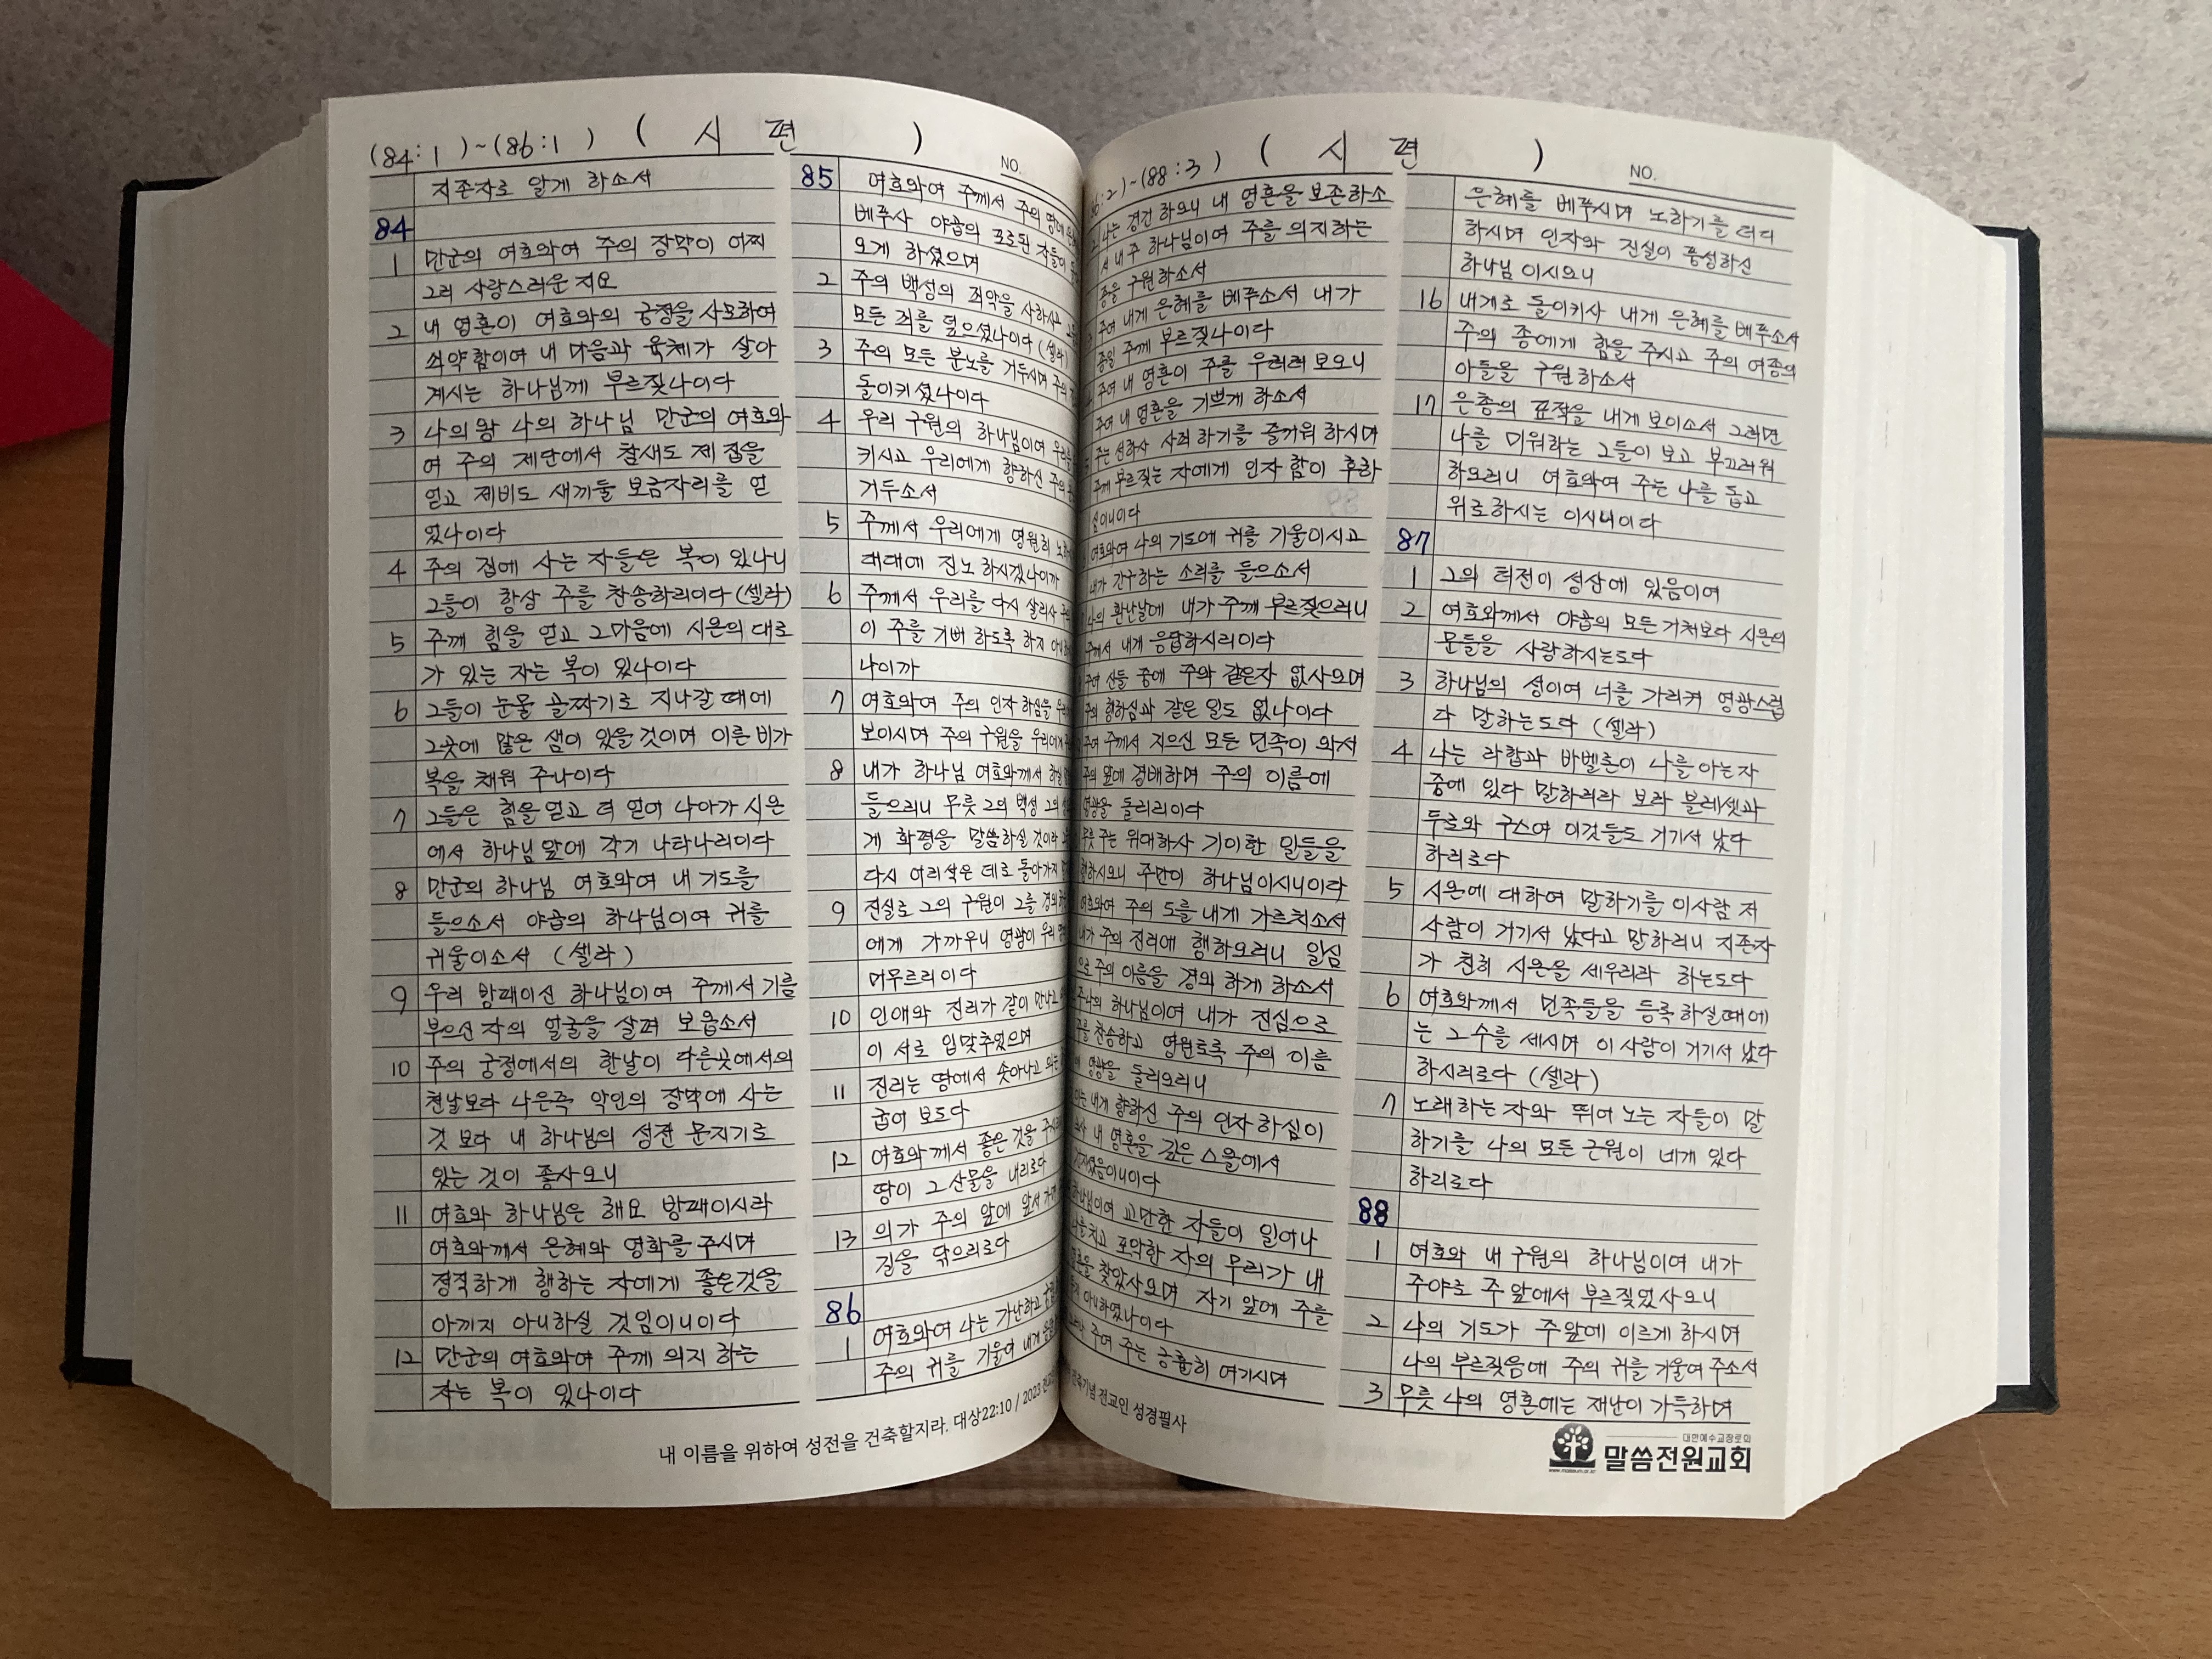 (84:1)~(86:1) ( 시 편 )
NO.
지존자로 알게 하소서
84
1 만군의 여호와여 주의 장막이 어찌
그리 사랑스러운 지요
2 내 영혼이 여호와의 궁정을 사모하여
쇠약함이여 내 마음과 육체가 살아
계시는 하나님께 부르짖나이다
3 나의왕 나의 하나님 만군의 여호와
여 주의 제단에서 참새도 제 집을
얻고 제비도 새끼둘 보금자리를 얻
었나이다
4 주의 집에 사는 자들은 복이 있나니
그들이 항상 주를 찬송하리이다(셀라)
5 주께 힘을 얻고 그마음에 시온의 대로
가 있는 자는 복이 있나이다
6 그들이 눈물 골짜기로 지나갈 때에
그곳에 많은 샘이 있을 것이며 이른 비가
복을 채워 주나이다
7 그들은 힘을 얻고 더 얻어 나아가 시온
에서 하나님 앞에 각기 나타나리이다
8 만군의 하나님 여호와여 내 기도를
들으소서 야곱의 하나님이여 귀를
귀울이소서 (셀라)
9 우리 방패이신 하나님이여 주께서 기름
부으신 자의 얼굴을 살펴 보옵소서
10 주의 궁정에서의 한날이 다른곳에서의
천날보다 나은즉 악인의 장막에 사는
것 보다 내 하나님의 성전 문지기로
있는 것이 좋사오니
11 여호와 하나님은 해요 방패이시라
여호와께서 은혜와 영화를 주시며
정직하게 행하는 자에게 좋은것을
아끼지 아니하실 것임이니이다
12 만군의 여호와여 주께 의지 하는
자는 복이 있나이다
85 여호와여 주께서 주의 땅에
베푸사 야곱의 포로된 자들이
오게 하셨으며
2 주의 백성의 죄악을 사하시고
모든 죄를 덮으셨나이다 (셀라)
3 주의 모든 분노를 거두시며 주의
돌이키셨나이다
4 우리 구원의 하나님이여 우리를
키시고 우리에게 향하신 주의
거두소서
5 주께서 우리에게 영원히
대대에 진노 하시겠나이까
6 주께서 우리를 다시 살리사
이 주를 기뻐 하도록 하지
나이까
7 여호와여 주의 인자 하심을
보이시며 주의 구원을 우리에게
8 내가 하나님 여호와께서 하실
들으리니 무릇 그의 백성 그의
게 화평을 말씀하실 것이라
다시 어리석은 데로 돌아가지
9 진실로 그의 구원이 그를
에게 가까우니 영광이 우리
머무르리이다
10 인애와 진리가 같이 만나고
이 서로 입맞추었으며
11 진리는 땅에서 솟아나고
굽어 보도다
12 여호와께서 좋은 것을
땅이 그 산물을 내리로다
13 의가 주의 앞에 앞서
길을 닦으리로다
86
1 여호와여 나는 가난하고
주의 귀를 기울여 내게
내 이름을 위하여 성전을 건축할지라. 대상22:10 / 2023
:2)~(88:3) ( 시 편 )
NO.
나는 경건 하오니 내 영혼을 보존하소
서 내 주 하나님이여 주를 의지하는
종을 구원하소서
주여 내게 은혜를 베푸소서 내가
종일 주께 부르짖나이다
주여 내 영혼이 주를 우러러 보오니
주여 내 영혼을 기쁘게 하소서
주는 선하사 사죄 하기를 즐거워 하시며
주께 부르짖는 자에게 인자 함이 후하
심이니이다
여호와여 나의 기도에 귀를 기울이시고
내가 간구하는 소리를 들으소서
나의 환난날에 내가 주께 부르짖으리니
주께서 내게 응답하시리이다
주여 신들 중에 주와 같은자 없사오며
주의 행하심과 같은 일도 없나이다
주여 주께서 지으신 모든 민족이 와서
주의 앞에 경배하며 주의 이름에
영광을 돌리리이다
무릇 주는 위대하사 기이한 일들을
행하시오니 주만이 하나님이시니이다
여호와여 주의 도를 내게 가르치소서
내가 주의 진리에 행하오리니 일심
으로 주의 이름을 경외 하게 하소서
주 나의 하나님이여 내가 진심으로
주를 찬송하고 영원토록 주의 이름
에 영광을 돌리오리니
이는 내게 향하신 주의 인자 하심이
내 영혼을 깊은 스올에서
하나님이여 교만한 자들이 일어나
나를 치고 포악한 자의 무리가 내
영혼을 찾았사오며 자기 앞에 주를
아니하였나이다
주여 주는 긍휼히 여기시며
은혜를 베푸시며 노하기를 더디
하시며 인자와 진실이 풍성하신
하나님 이시오니
16 내게로 돌이키사 내게 은혜를 베푸소서
주의 종에게 힘을 주시고 주의 여종의
아들을 구원 하소서
17 은총의 표적을 내게 보이소서 그러면
나를 미워하는 그들이 보고 부끄러워
하오리니 여호와여 주는 나를 돕고
위로하시는 이시니이다
87
1 그의 터전이 성산에 있음이여
2 여호와께서 야곱의 모든거처보다 시온의
문들을 사랑하시는도다
3 하나님의 성이여 너를 가리켜 영광스럽
다 말하는도다 (셀라)
4 나는 라합과 바벨론이 나를 아는자
중에 있다 말하리라 보라 블레셋과
두로와 구스여 이것들도 거기서 났다
하리로다
5 시온에 대하여 말하기를 이사람 저
사람이 거기서 났다고 말하리니 지존자
가 친히 시온을 세우리라 하는도다
6 여호와께서 민족들을 등록 하실때에
는 그 수를 세시며 이 사람이 거기서 났다
하시리로다 (셀라)
7 노래하는 자와 뛰어 노는 자들이 말
하기를 나의 모든 근원이 네게 있다
하리로다
88
1 여호와 내 구원의 하나님이여 내가
주야로 주 앞에서 부르짖었사오니
2 나의 기도가 주앞에 이르게 하시며
나의 부르짖음에 주의 귀를 기울여 주소서
3 무릇 나의 영혼에는 재난이 가득하며
전교인 성경필사
대한예수교장로회
말씀전원교회